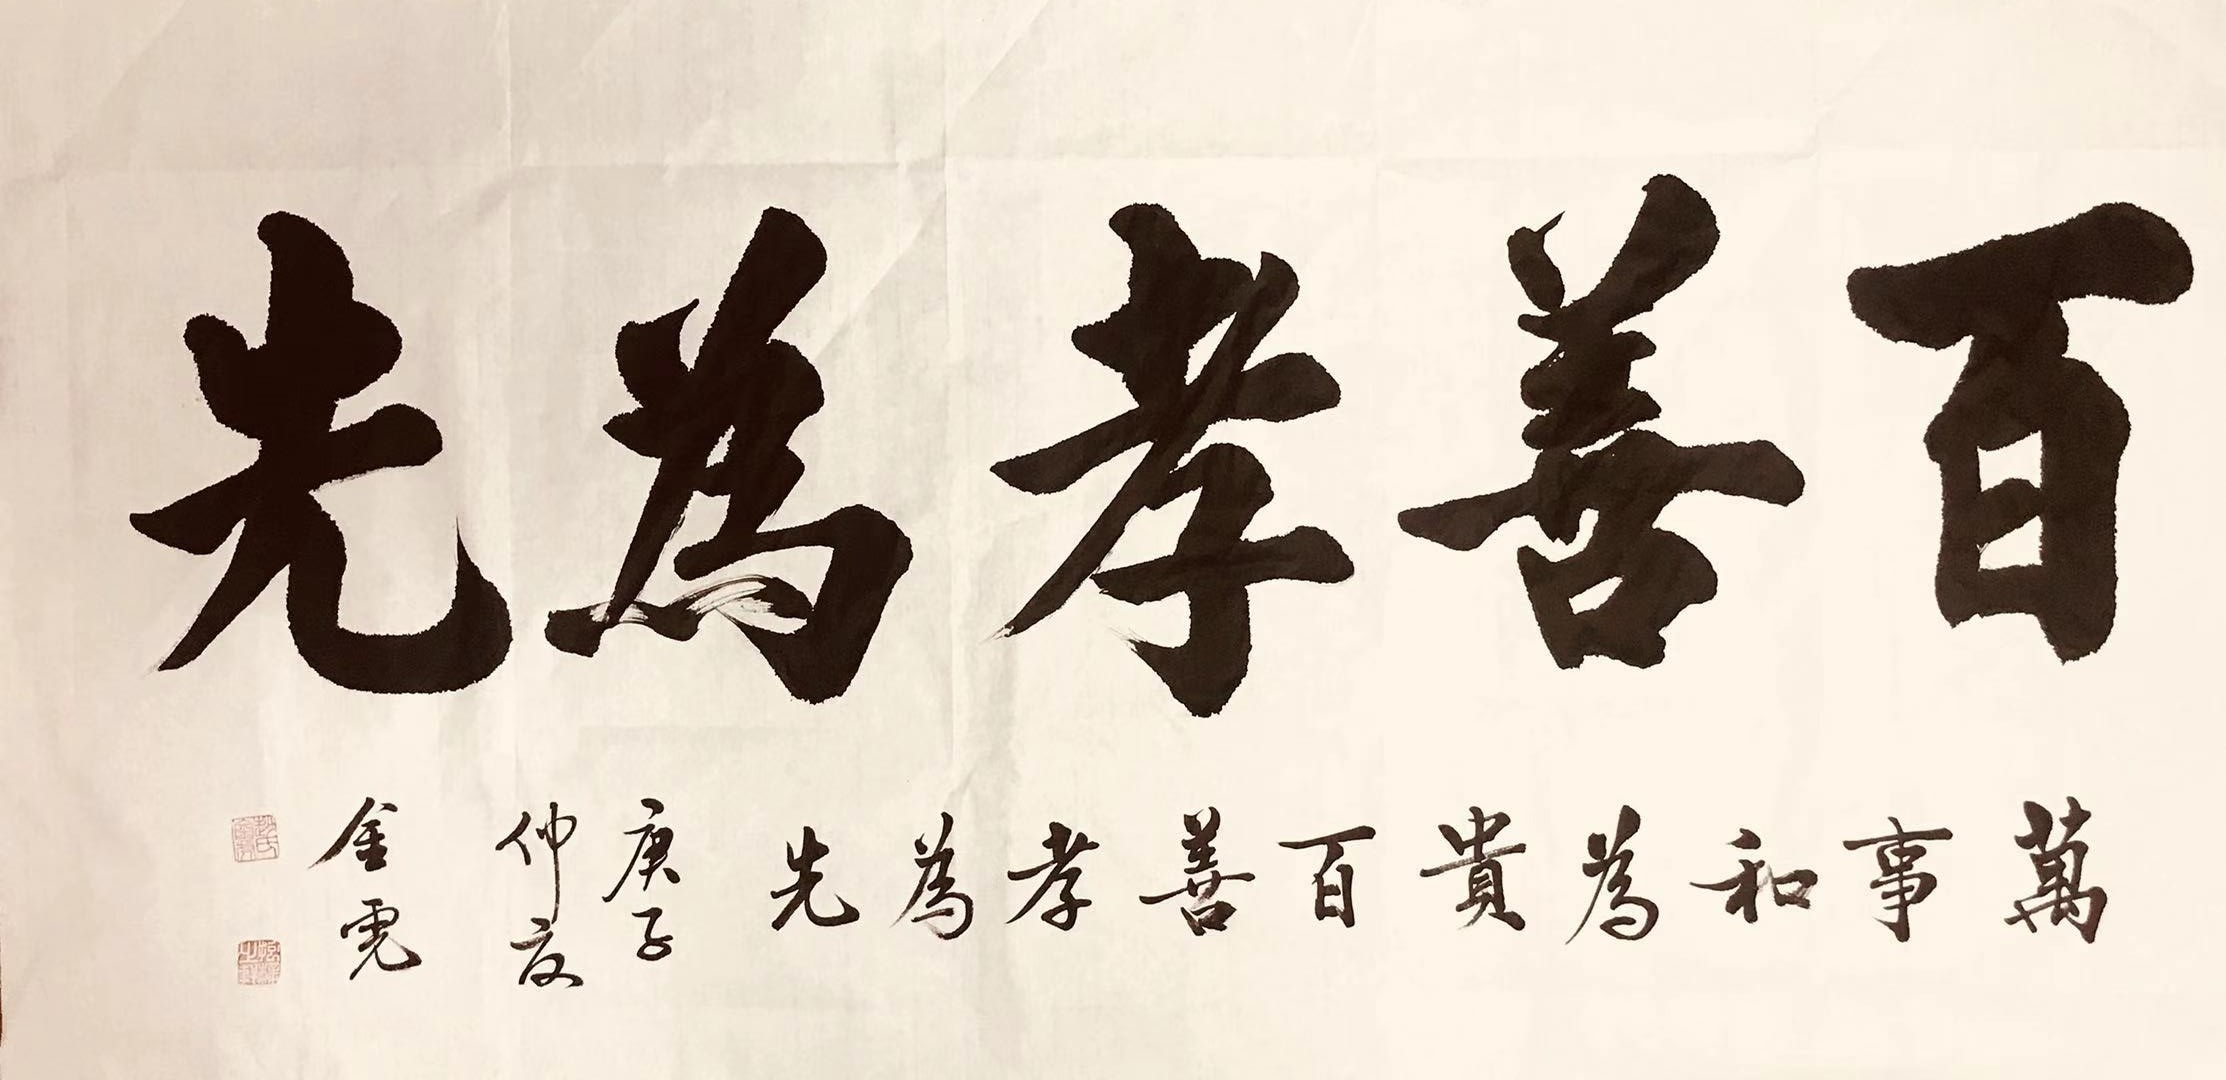 百善孝為先
萬事和為貴百善孝為先
庚子
仲夏
金雲